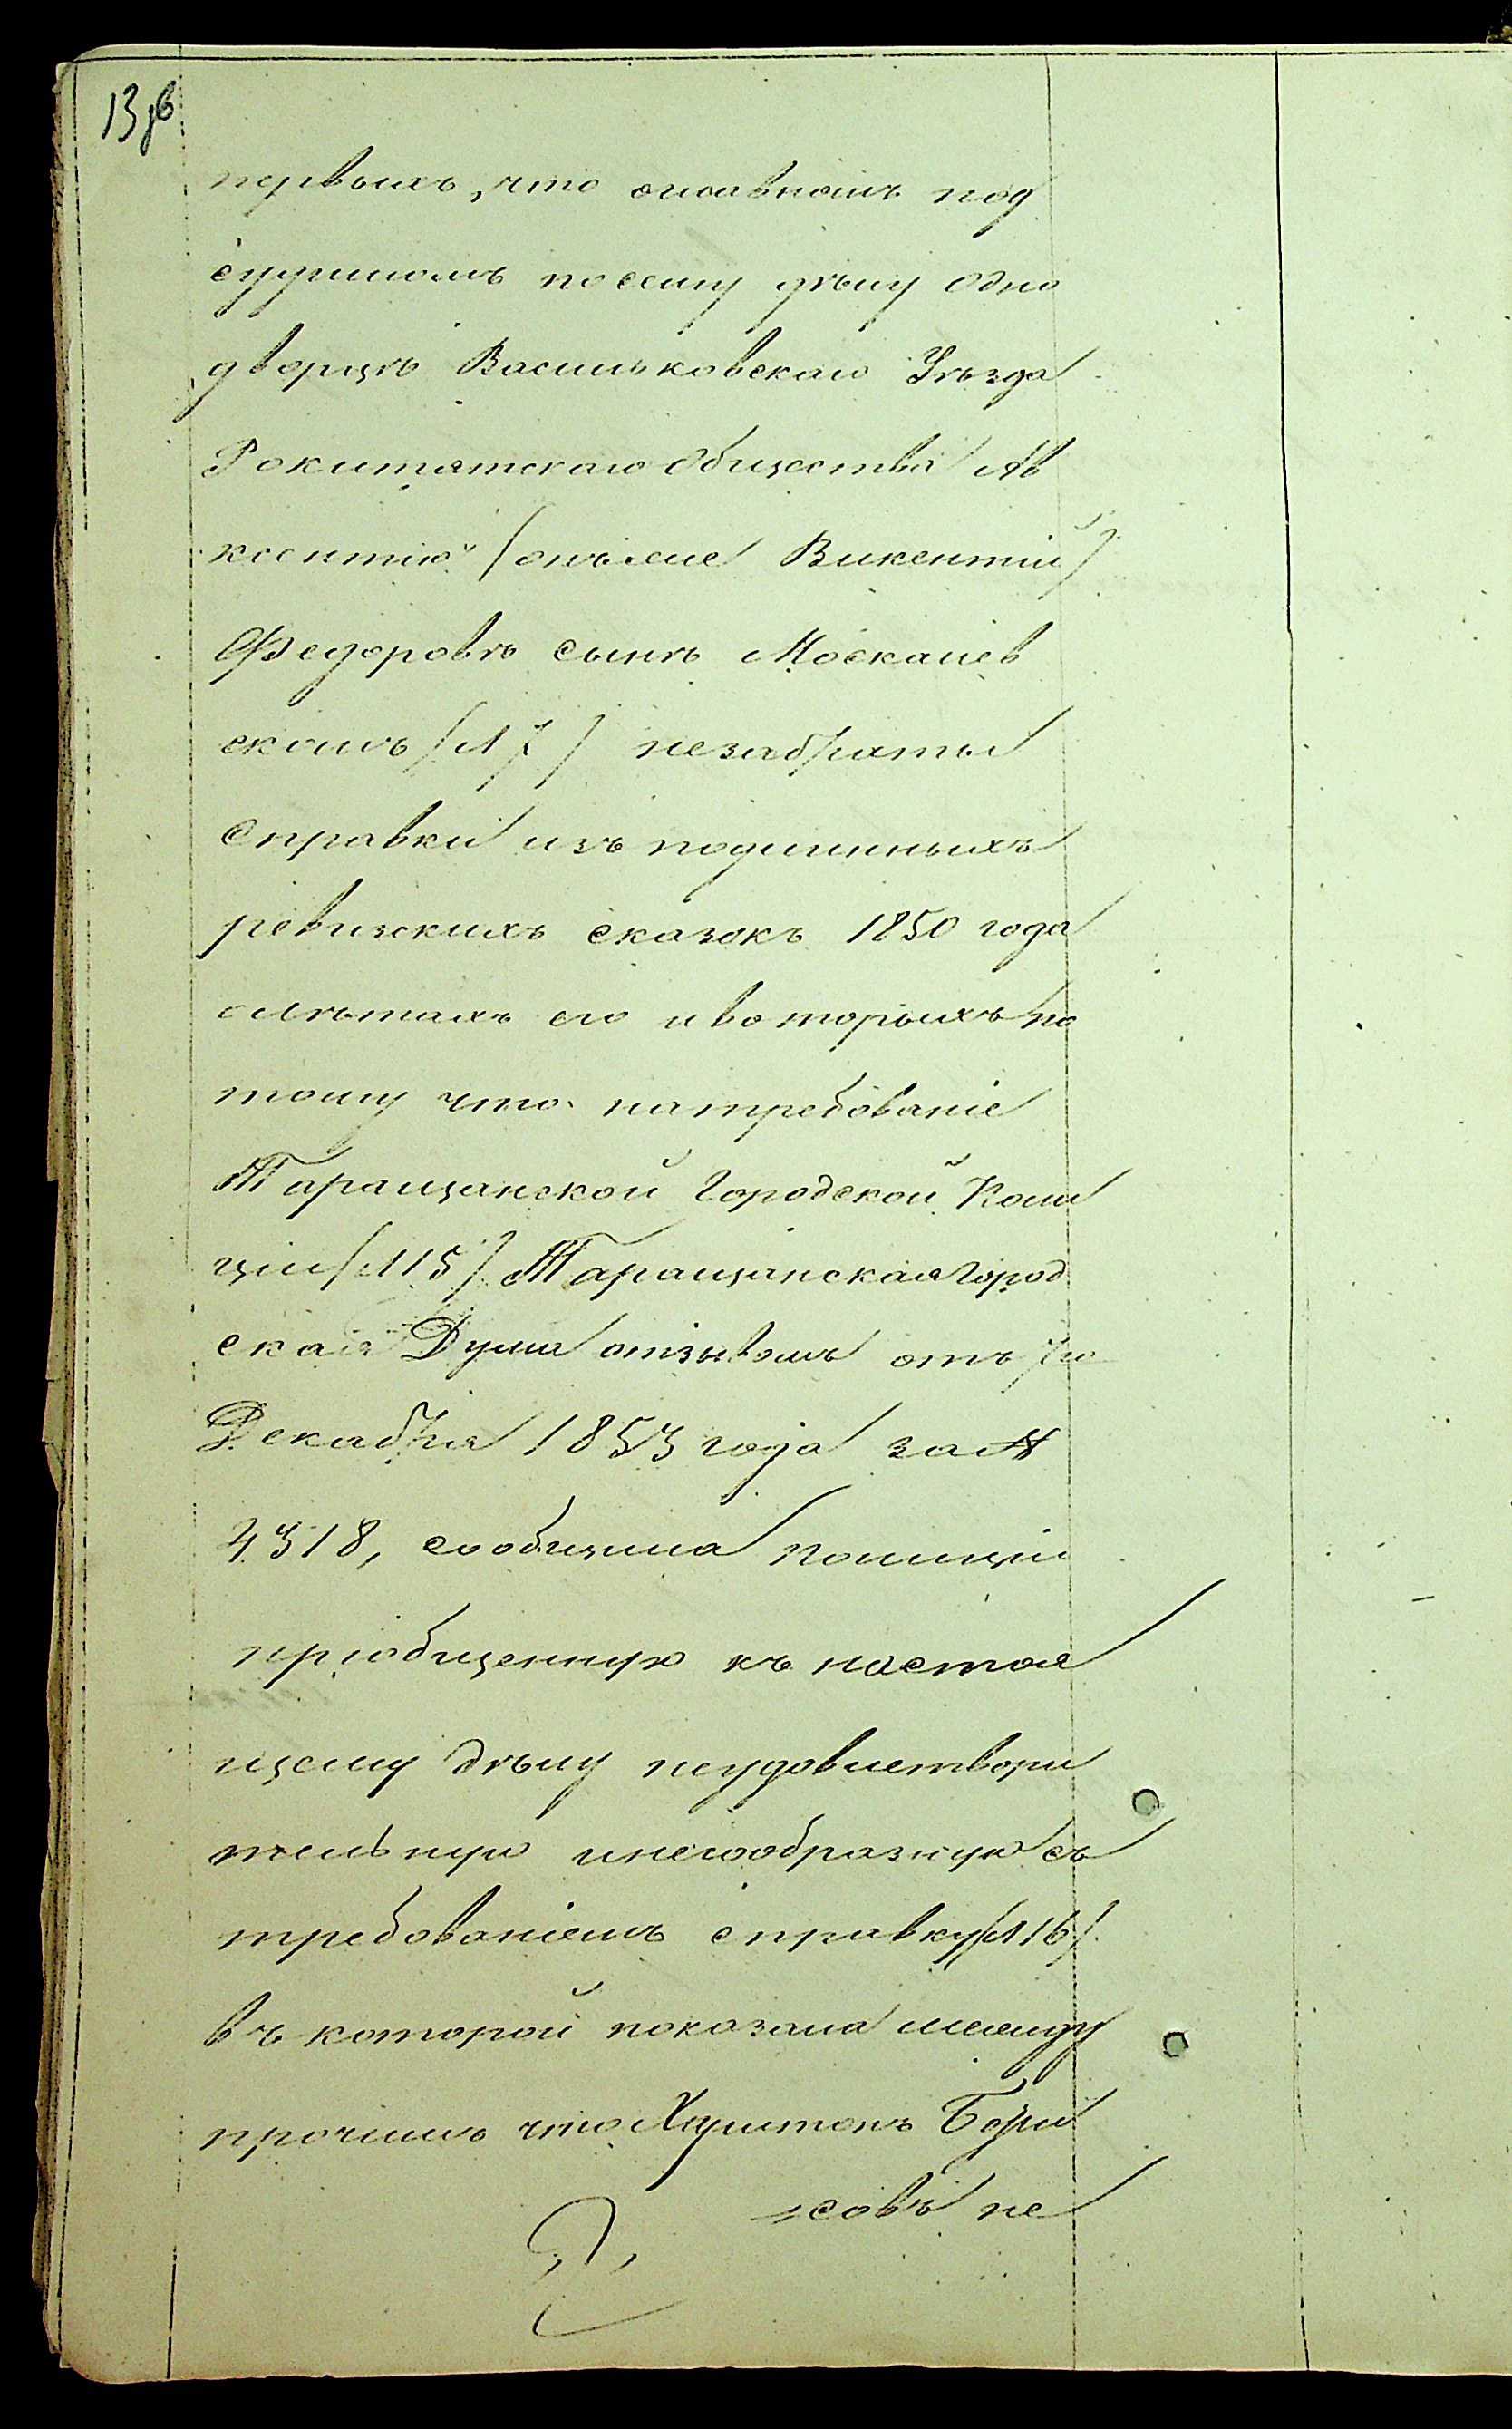 13 зв
первыхъ, что оглавномъ под
судимомъ посему дѣлу Одно
дворцѣ Васильковскаго Уѣзда
Рокитянскаго Общества Ав
ксентію (онъже Викентій)
Федоровѣ сынѣ Москалев
скомъ (л 7) незабраты
справки изъ подлинныхъ
ревизскихъ сказокъ 1850 года
олѣтахъ его ивовторыхъ по
тому что натребованіе
Таращанской Городской Поли
ціи (л 15) Таращанская Город
ская Дума отзывомъ отъ 7го
Декабря 1853 года за №
4318, сообщила Полиціи
пріобщенную къ настоя
щему дѣлу неудовлетвори
тельную инесообразную съ
требованіемъ справку (л 16).
въ которой показала между
прочимъ что Харитонъ Бори
совъ не